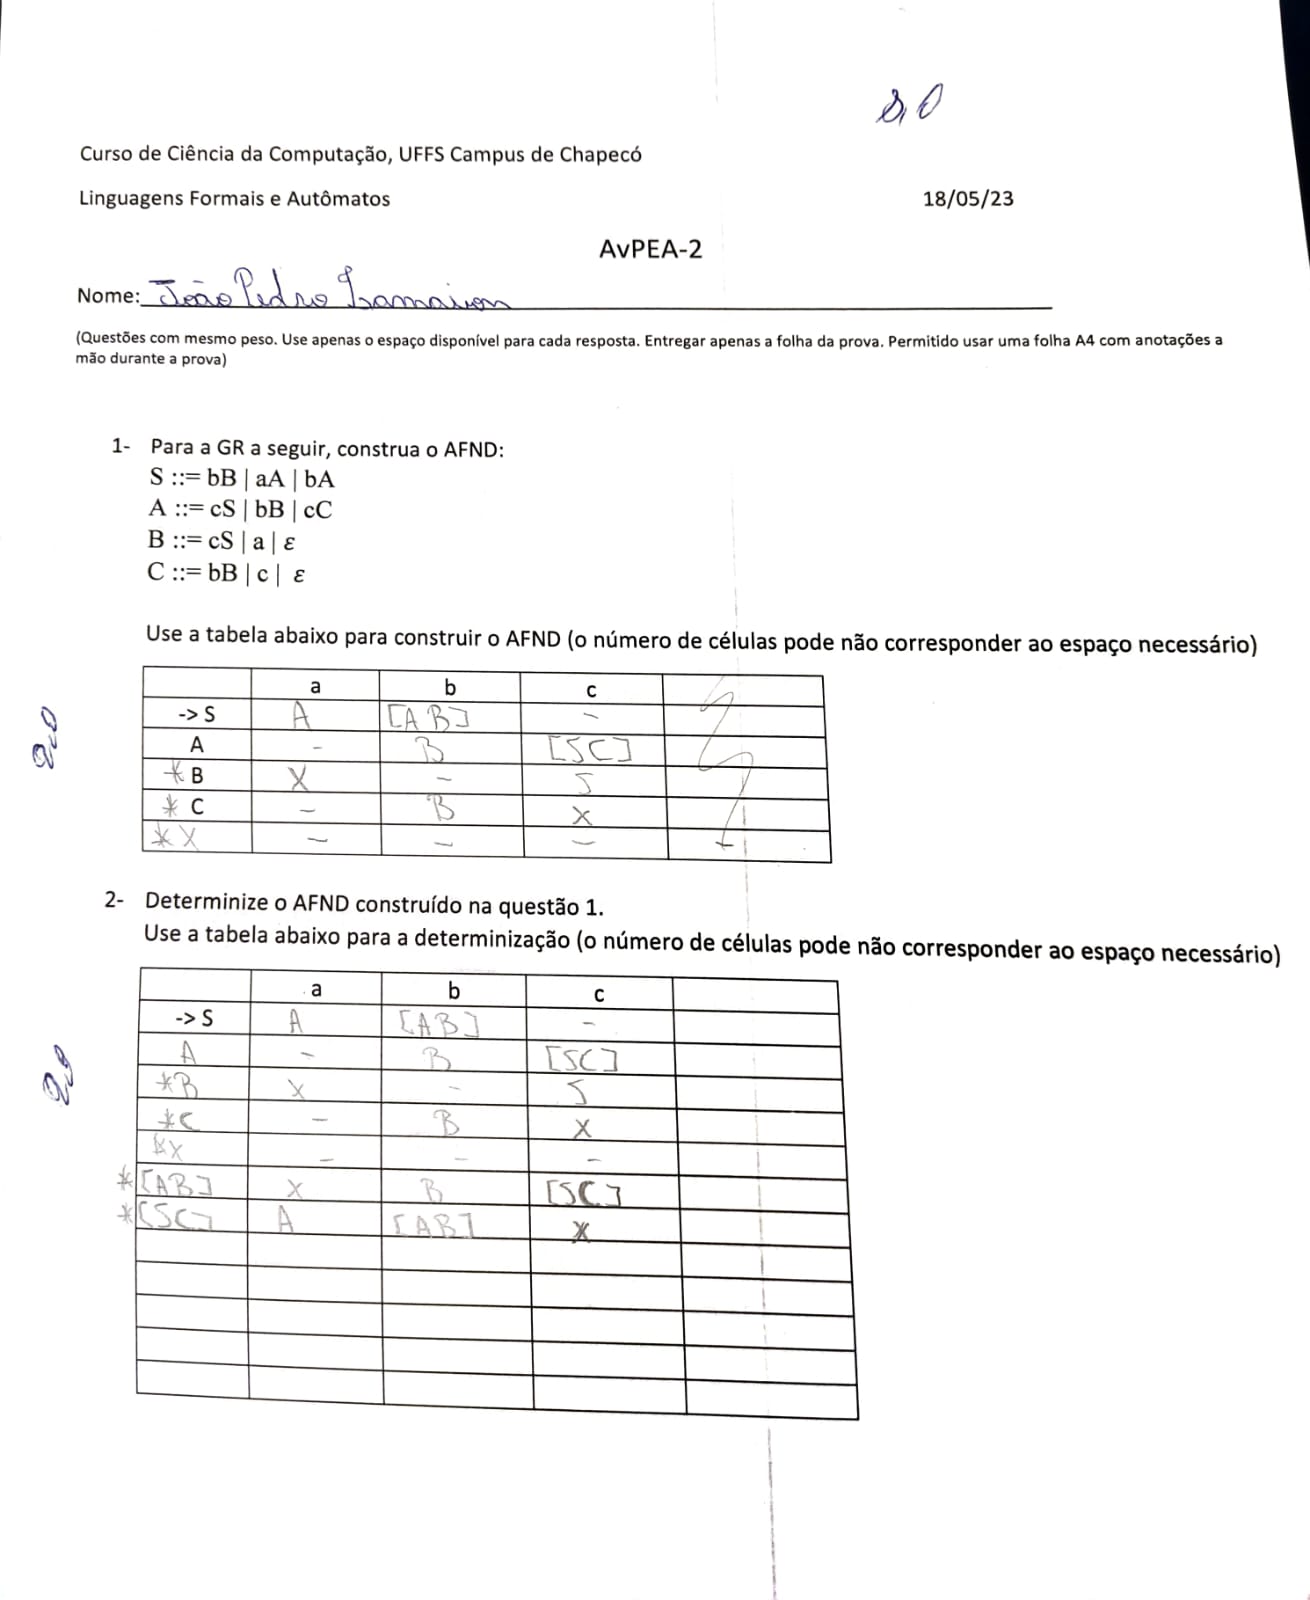 8,0
Curso de Ciência da Computação, UFFS Campus de Chapecó
Linguagens Formais e Autômatos 18/05/23
AvPEA-2
Nome: João Pedro
(Questões com mesmo peso. Use apenas o espaço disponível para cada resposta. Entregar apenas a folha da prova. Permitido usar uma folha A4 com anotações a
mão durante a prova)
1- Para a GR a seguir, construa o AFND:
S ::= bB | aA | bA
A ::= cS | bB | cC
B ::= cS | a | ε
C ::= bB | c | ε
Use a tabela abaixo para construir o AFND (o número de células pode não corresponder ao espaço necessário)
a b c
-> S A [AB] -
A - B [SC]
* B X - S
* C - B X
* X - - -
2,0
2- Determinize o AFND construído na questão 1.
Use a tabela abaixo para a determinização (o número de células pode não corresponder ao espaço necessário)
a b c
-> S A [AB] -
A - B [SC]
*B X - S
*C - B X
*X - - -
*[AB] X B [SC]
*[SC] A [AB] X